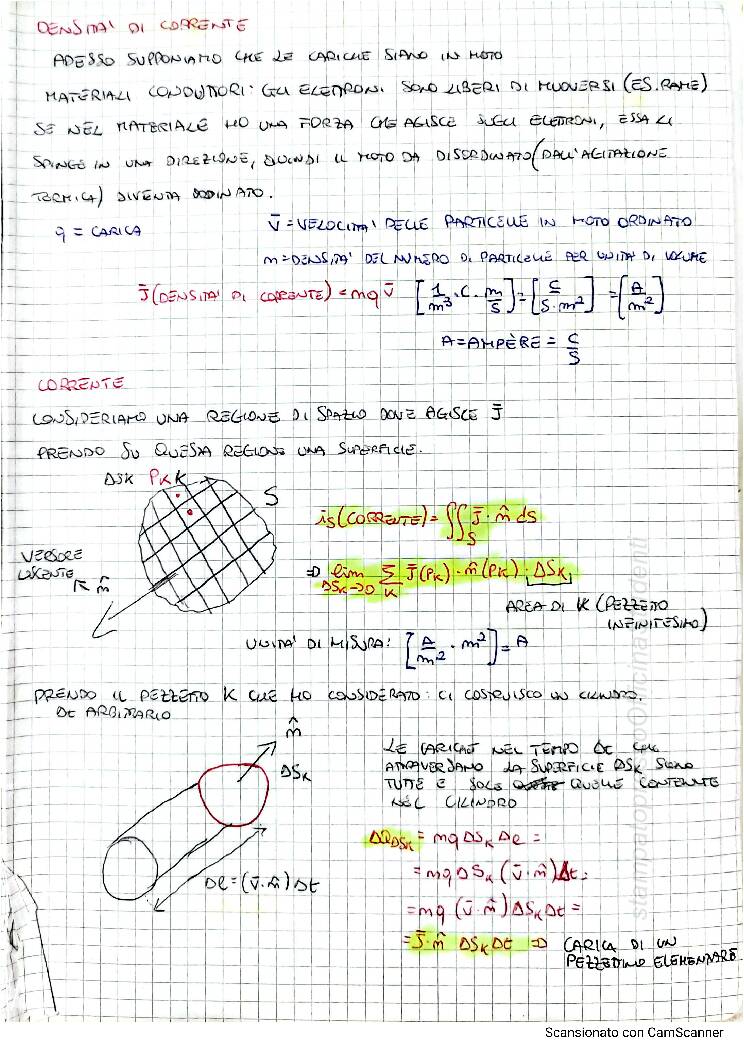 DENSITA' DI CORRENTE
ADESSO SUPPONIAMO CHE LE CARICHE SIANO IN MOTO
MATERIALI CONDUTTORI: GLI ELETTRONI SONO LIBERI DI MUOVERSI (ES. RAME)
SE NEL MATERIALE HO UNA FORZA CHE AGISCE SUGLI ELETTRONI, ESSA LI
SPINGE IN UNA DIREZIONE, QUINDI IL MOTO DA DISORDINATO (DALL'AGITAZIONE
TERMICA) DIVENTA ORDINATO.
q = CARICA
v̄ = VELOCITA' DELLE PARTICELLE IN MOTO ORDINATO
n = DENSITA' DEL NUMERO DI PARTICELLE PER UNITA' DI VOLUME
J̄ (DENSITA' DI CORRENTE) = nq v̄ [1/m³ · C · m/s] = [C/(s·m²)] = [A/m²]
A = AMPÈRE = C/S
CORRENTE
CONSIDERIAMO UNA REGIONE DI SPAZIO DOVE AGISCE J̄
PRENDO SU QUESTA REGIONE UNA SUPERFICIE.
ΔSK PK K
S
is (CORRENTE) = ∬S J̄ · n̂ dS
VERSORE
USCENTE
n̂
⇒ lim ΔSK→0 ΣK J̄(PK) · n̂(PK) · ΔSK
AREA DI K (PEZZETTO
INFINITESIMO)
UNITA' DI MISURA: [A/m² · m²] = A
PRENDO IL PEZZETTO K CHE HO CONSIDERATO: CI COSTRUISCO UN CILINDRO.
Δt ARBITRARIO
n̂
ΔSK
Δl = (v̄ · n̂) Δt
LE CARICHE NEL TEMPO Δt CHE
ATTRAVERSANO LA SUPERFICIE ΔSK SONO
TUTTE E SOLE QUELLE CONTENUTE
NEL CILINDRO
ΔQΔSK = nq ΔSK Δl =
= nq ΔSK (v̄ · n̂) Δt =
= nq (v̄ · n̂) ΔSK Δt =
= J̄ · n̂ ΔSK Δt ⇒ CARICA DI UN
PEZZETTINO ELEMENTARE
Scansionato con CamScanner